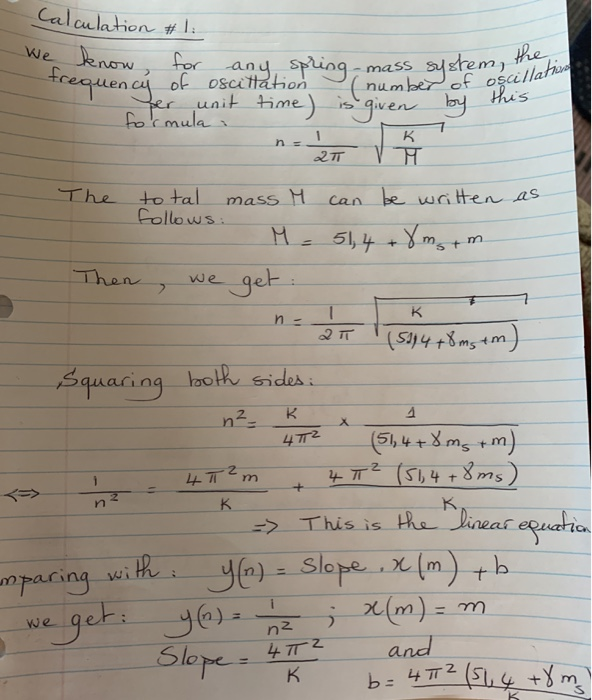 Calculation #1:
We know, for any spring-mass system, the
frequency of oscillation (number of oscillations
per unit time) is given by this
formula:
n = 1/2π √(K/M)
The total mass M can be written as
follows:
M = 51,4 + γ mₛ + m
Then, we get:
n = 1/2π √(K/(51,4 + γ mₛ + m))
Squaring both sides:
n² = K/4π² × 1/(51,4 + γ mₛ + m)
<=> 1/n² = 4π² m/K + 4π² (51,4 + γ mₛ)/K
=> This is the linear equation
mparing with: y(n) = Slope . x(m) + b
we get: y(n) = 1/n² ; x(m) = m
Slope = 4π²/K and
b = 4π² (51,4 + γ mₛ)/K